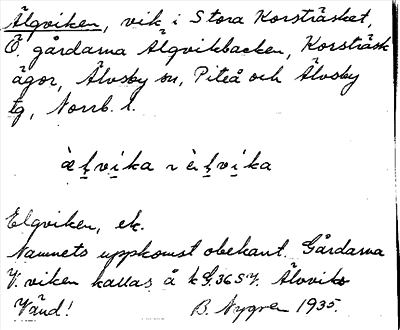 Älgviken, vik i Stora Korsträsket,
Ö. gårdarna Älgvikbacken, Korsträsk
ägor, Älvsby sn, Piteå och Älvsby
tg, Norrb. l.
Elgviken, ek.
Namnets uppkomst obekant. Gårdarna
V. viken kallas å k G. 36 SV. Älvviks
Vänd! B. Nygren 1935.